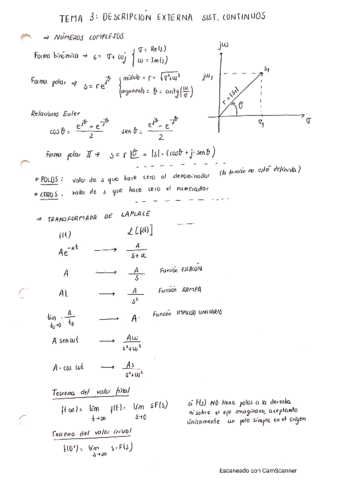 TEMA 3: DESCRIPCIÓN EXTERNA SIST. CONTINUOS
→ NÚMEROS COMPLEJOS
Forma binómica → s = σ + ωj { σ = Re(s)
ω = Im(s)
Forma polar → s = r e^jθ { módulo = r = √σ²+ω²
argumento = θ = arctg (ω/σ)
jω
jω₁
s₁
r = |s₁|
θ
σ₁
σ
Relaciones Euler
cosθ = (e^jθ + e^-jθ)/2 senθ = (e^jθ - e^-jθ)/2
Forma polar II → s = r |θ = |s| · (cosθ + j·senθ)
* POLOS: valor de s que hace cero al denominador (la función no está definida)
* CEROS: valor de s que hace cero el numerador
→ TRANSFORMADA DE LAPLACE
f(t) L[f(t)]
Ae^-at → A/(s+a)
A → A/s Función ESCALÓN
At → A/s² Función RAMPA
lim t₀→0 A/t₀ → A Función IMPULSO UNITARIO
A senωt → Aω/(s²+ω²)
A·cos ωt → As/(s²+ω²)
Teorema del valor final
f(∞) = lim t→∞ f(t) = lim s→0 sF(s)
si F(s) NO tiene polos a la derecha
ni sobre el eje imaginario, aceptando
únicamente un polo simple en el origen
Teorema del valor inicial
f(0⁺) = lim s→∞ s·F(s)
Escaneado con CamScanner